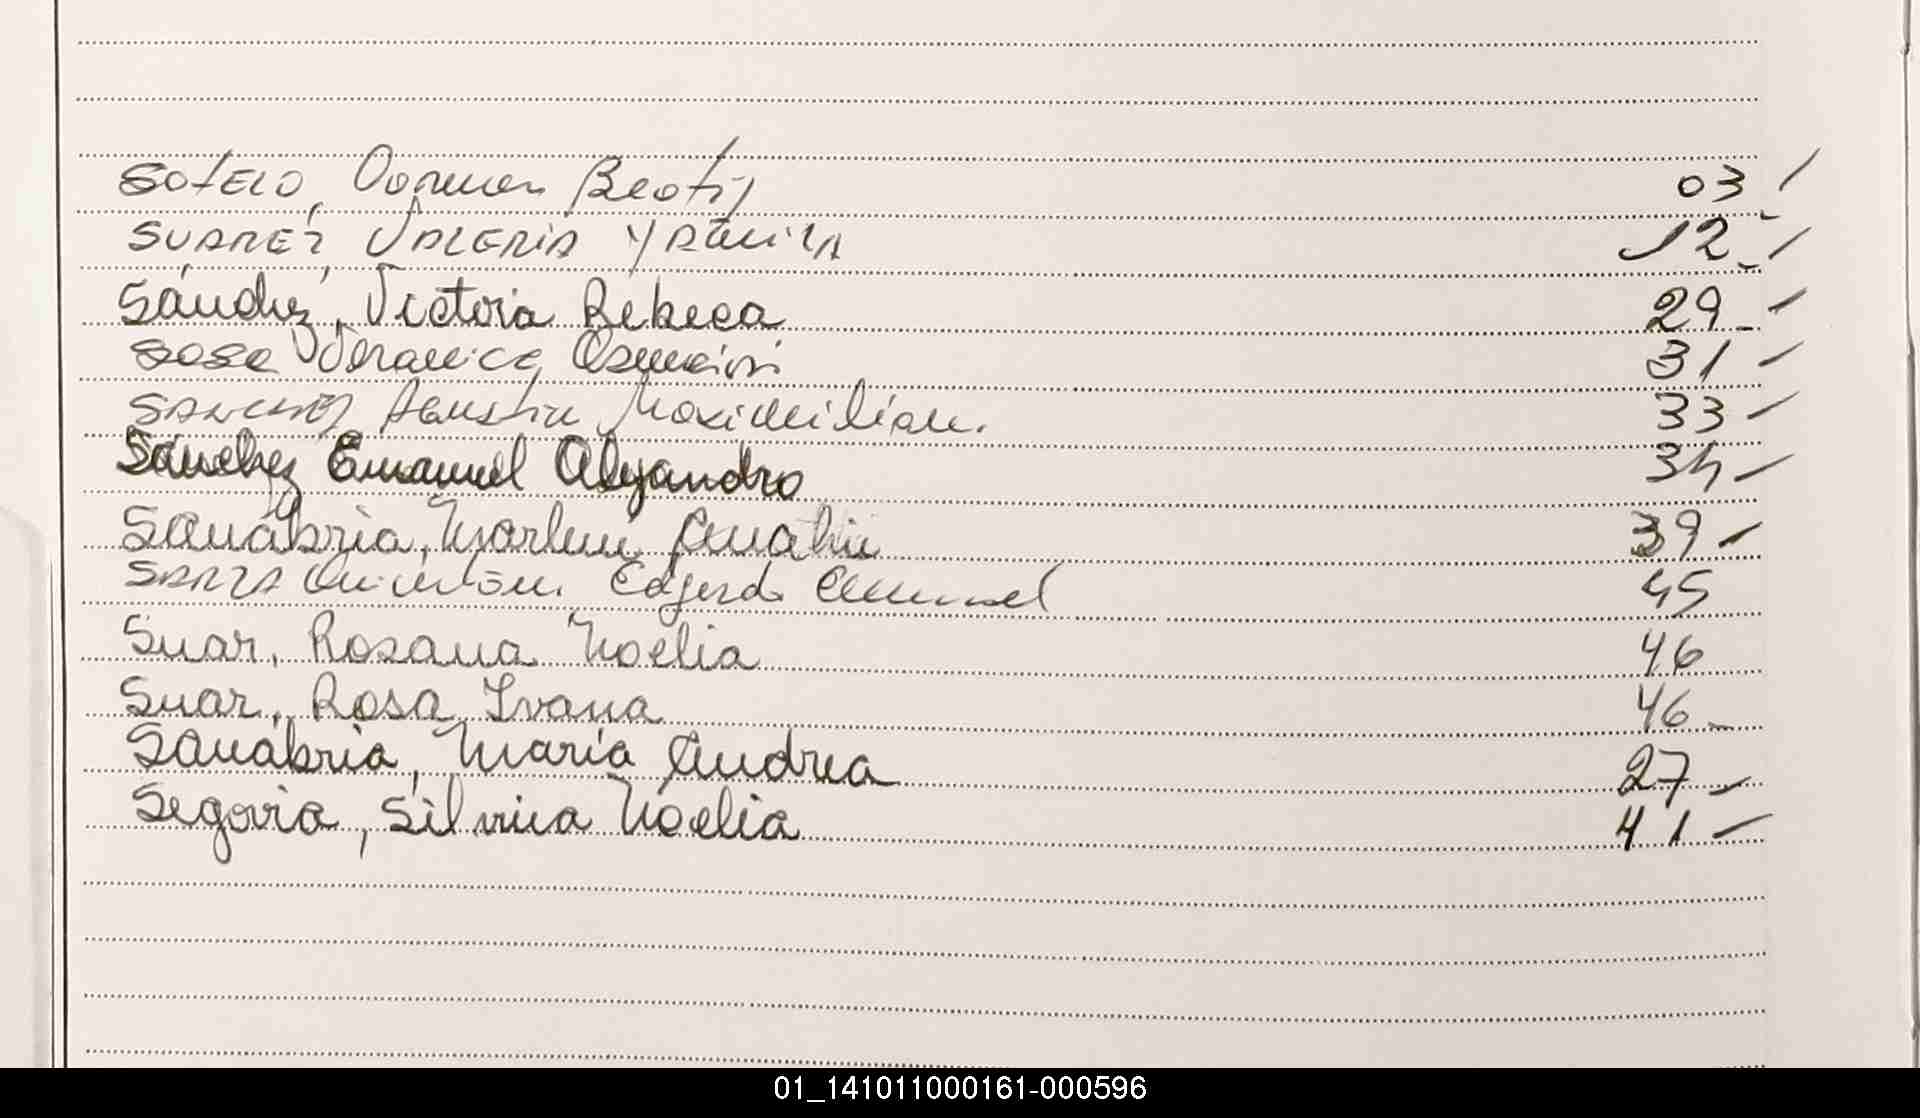 Sotelo, Carmen Beatriz 03
SUAREZ, VALERIA YAMILA 12
Sánchez, Victoria Rebeca 29
Sosa Veronica 31
SANCHEZ Agustin Maximilian. 33
Sánchez Emanuel Alejandro 34
Sanabria, Marleni Anahi 39
45
Suar, Rosana Noelia 46
Suar, Rosa Ivana 46
Sanabria, María Andrea 27
Segovia, Silvina Noelia 41
01_141011000161-000596